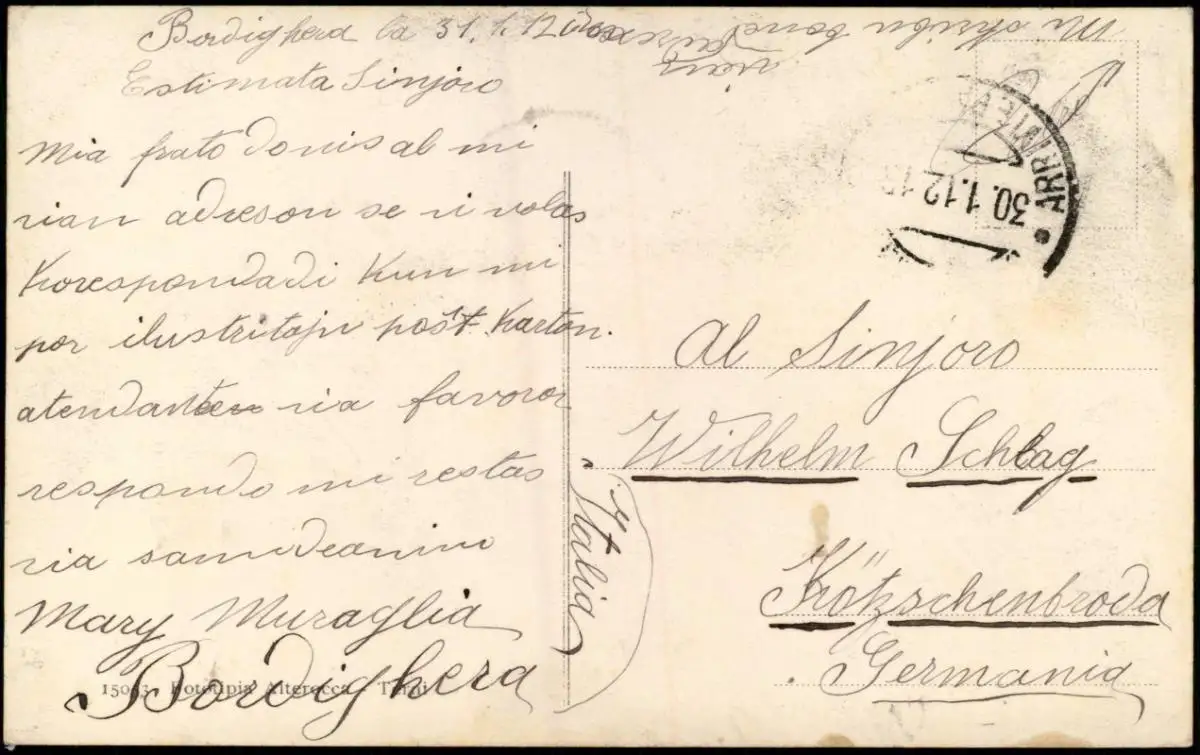 Bordighera la 31.1.12
Estimata Sinjoro
Mia frato donis al mi
vian adreson se vi volas
Korespondadi Kun mi
por ilustritajn poŝt Karton.
atendante via favoror
respondo mi restas
via samideanino
Mary Muraglia
Bordighera
Italia
15053 - Fototipia Alterocca - Terni
Mi skribu
30.1.12
Al Sinjoro
Wilhelm Schlag
Kötzschenbroda
Germania